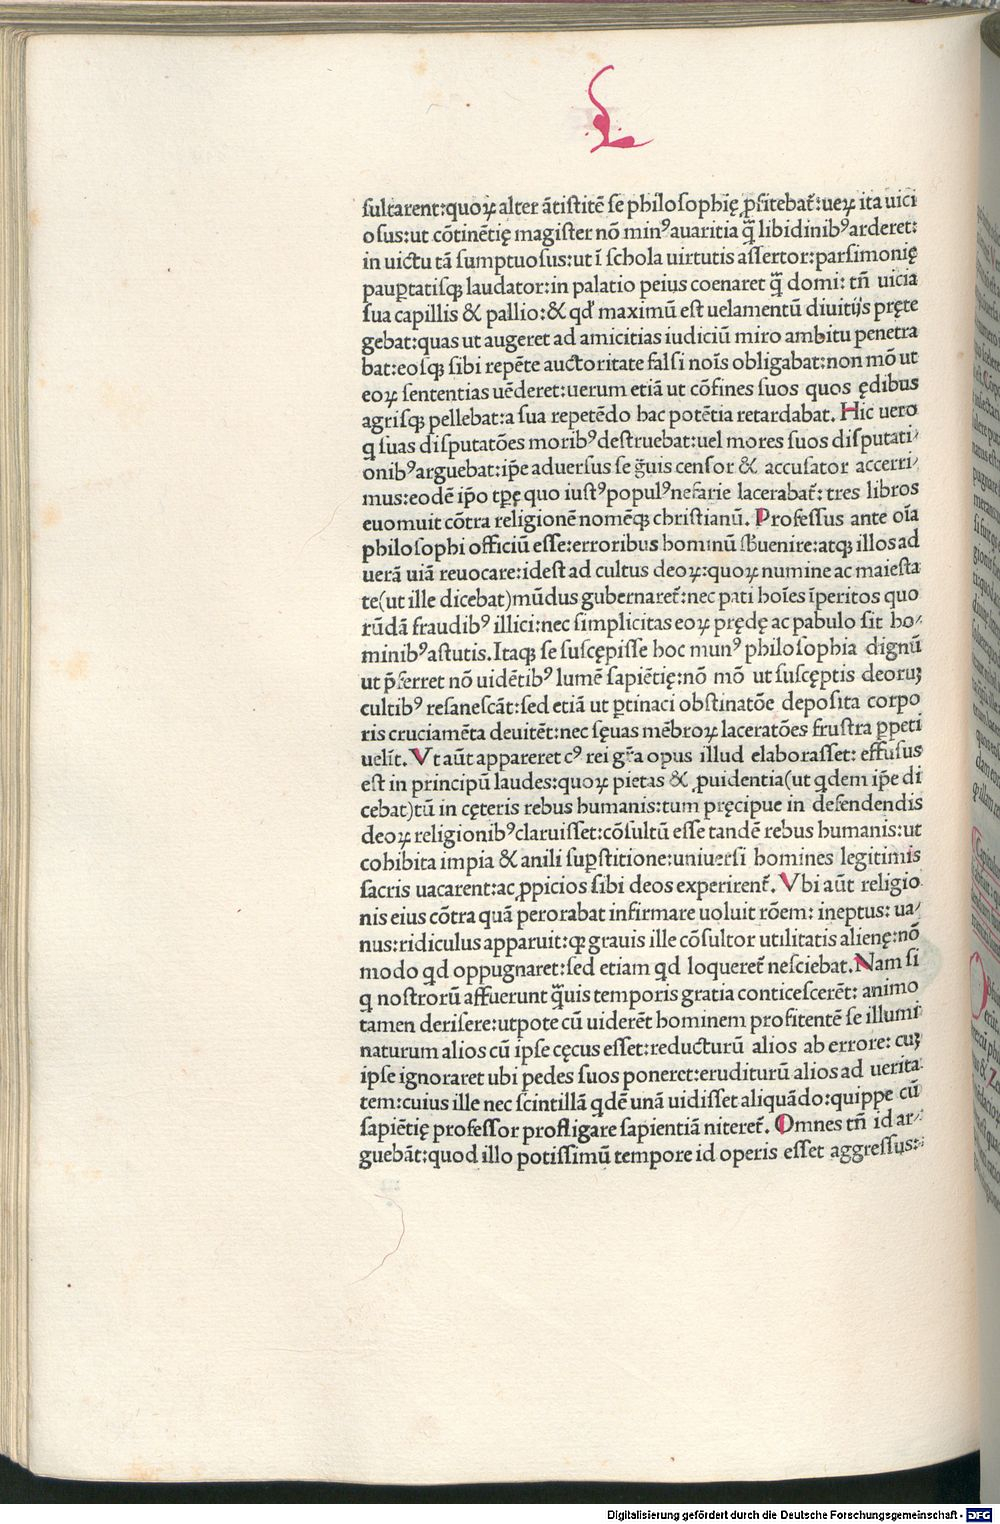 L
sultarent:quoꝝ alter ãtistitẽ se philosophię ꝓfitebat̃:ueꝝ ita uici
osus:ut cõtinẽtię magister nõ minꝰ auaritia q̃̃ libidinibꝰ arderet:
in uictu tã sumptuosus:ut ĩ schola uirtutis assertor:parsimonię
pauꝑtatisqꝫ laudator:in palatio peius coenaret q̃̃ domi: tñ uicia
sua capillis & pallio:& qđ maximũ est uelamentũ diuitijs pręte
gebat:quas ut augeret ad amicitias iudiciũ miro ambitu penetra
bat:eosqꝫ sibi repẽte auctoritate falsi noĩs obligabat:non mõ ut
eoꝝ sententias uẽderet:uerum etiã ut cõfines suos quos ędibus
agrisqꝫ pellebat:a sua repetẽdo hac potẽtia retardabat. Hic uero
q suas disputatões moribꝰ destruebat:uel mores suos disputati᾽
onibꝰ arguebat:ip̃e aduersus se g̃uis censor & accusator accerri᾽
mus:eodẽ ip̃o tp̃ę quo iustꝰ populꝰ nefarie lacerabat̃: tres libros
euomuit cõtra religionẽ nomẽqꝫ christianũ. Professus ante oĩa
philosophi officiũ esse:erroribus hominũ sƀuenire:atqꝫ illos ad
uerã uiã reuocare:idest ad cultus deoꝝ:quoꝝ numine ac maiesta
te(ut ille dicebat)mũdus gubernaret̃:nec pati hoĩes ĩperitos quo
rũdã fraudibꝰ illici:nec simplicitas eoꝝ prędę ac pabulo sit ho᾽
minibꝰ astutis.Itaqꝫ se suscępisse hoc munꝰ philosophia dignũ
ut p̃ferret nõ uidẽtibꝰ lumẽ sapiẽtię:nõ mõ ut suscęptis deoruꝫ
cultibꝰ resanescãt:sed etiã ut ꝑtinaci obstinatõe deposita corpo
ris cruciamẽta deuitẽt:nec sęuas mẽbroꝝ laceratões frustra ꝑpeti
uelĩt. Vt aũt appareret cꝰ rei gr̃a opus illud elaborasset: effusus
est in principũ laudes:quoꝝ pietas & ꝓuidentia(ut qdem ip̃e di
cebat)tũ in cęteris rebus humanis:tum pręcipue in defendendis
deoꝝ religionibꝰ claruisset:cõsultũ esse tandẽ rebus humanis:ut
cohibita impia & anili suꝑstitione:uniuersi homines legitimis
sacris uacarent:ac ꝓpicios sibi deos experirent̃. Vbi aũt religio
nis eius cõtra quã perorabat infirmare uoluit rõem: ineptus: ua᾽
nus:ridiculus apparuit:qꝫ grauis ille cõsultor utilitatis alienę:nõ
modo qd oppugnaret:sed etiam qd loqueret̃ nesciebat.Nam si
q nostrorũ affuerunt q̃̃uis temporis gratia conticescerẽt: animo
tamen derisere:utpote cũ uiderẽt hominem profitentẽ se illumi
naturum alios cũ ipse cęcus esset:reducturũ alios ab errore: cuꝫ
ipse ignoraret ubi pedes suos poneret:eruditurũ alios ad uerita
tem:cuius ille nec scintillã qdẽ unã uidisset aliquãdo:quippe cũ
sapiẽtię professor profligare sapientiã niteret̃. Omnes tñ id ar᾽
guebãt:quod illo potissimũ tempore id operis esset aggressus:
Digitalisierung gefördert durch die Deutsche Forschungsgemeinschaft - DFG